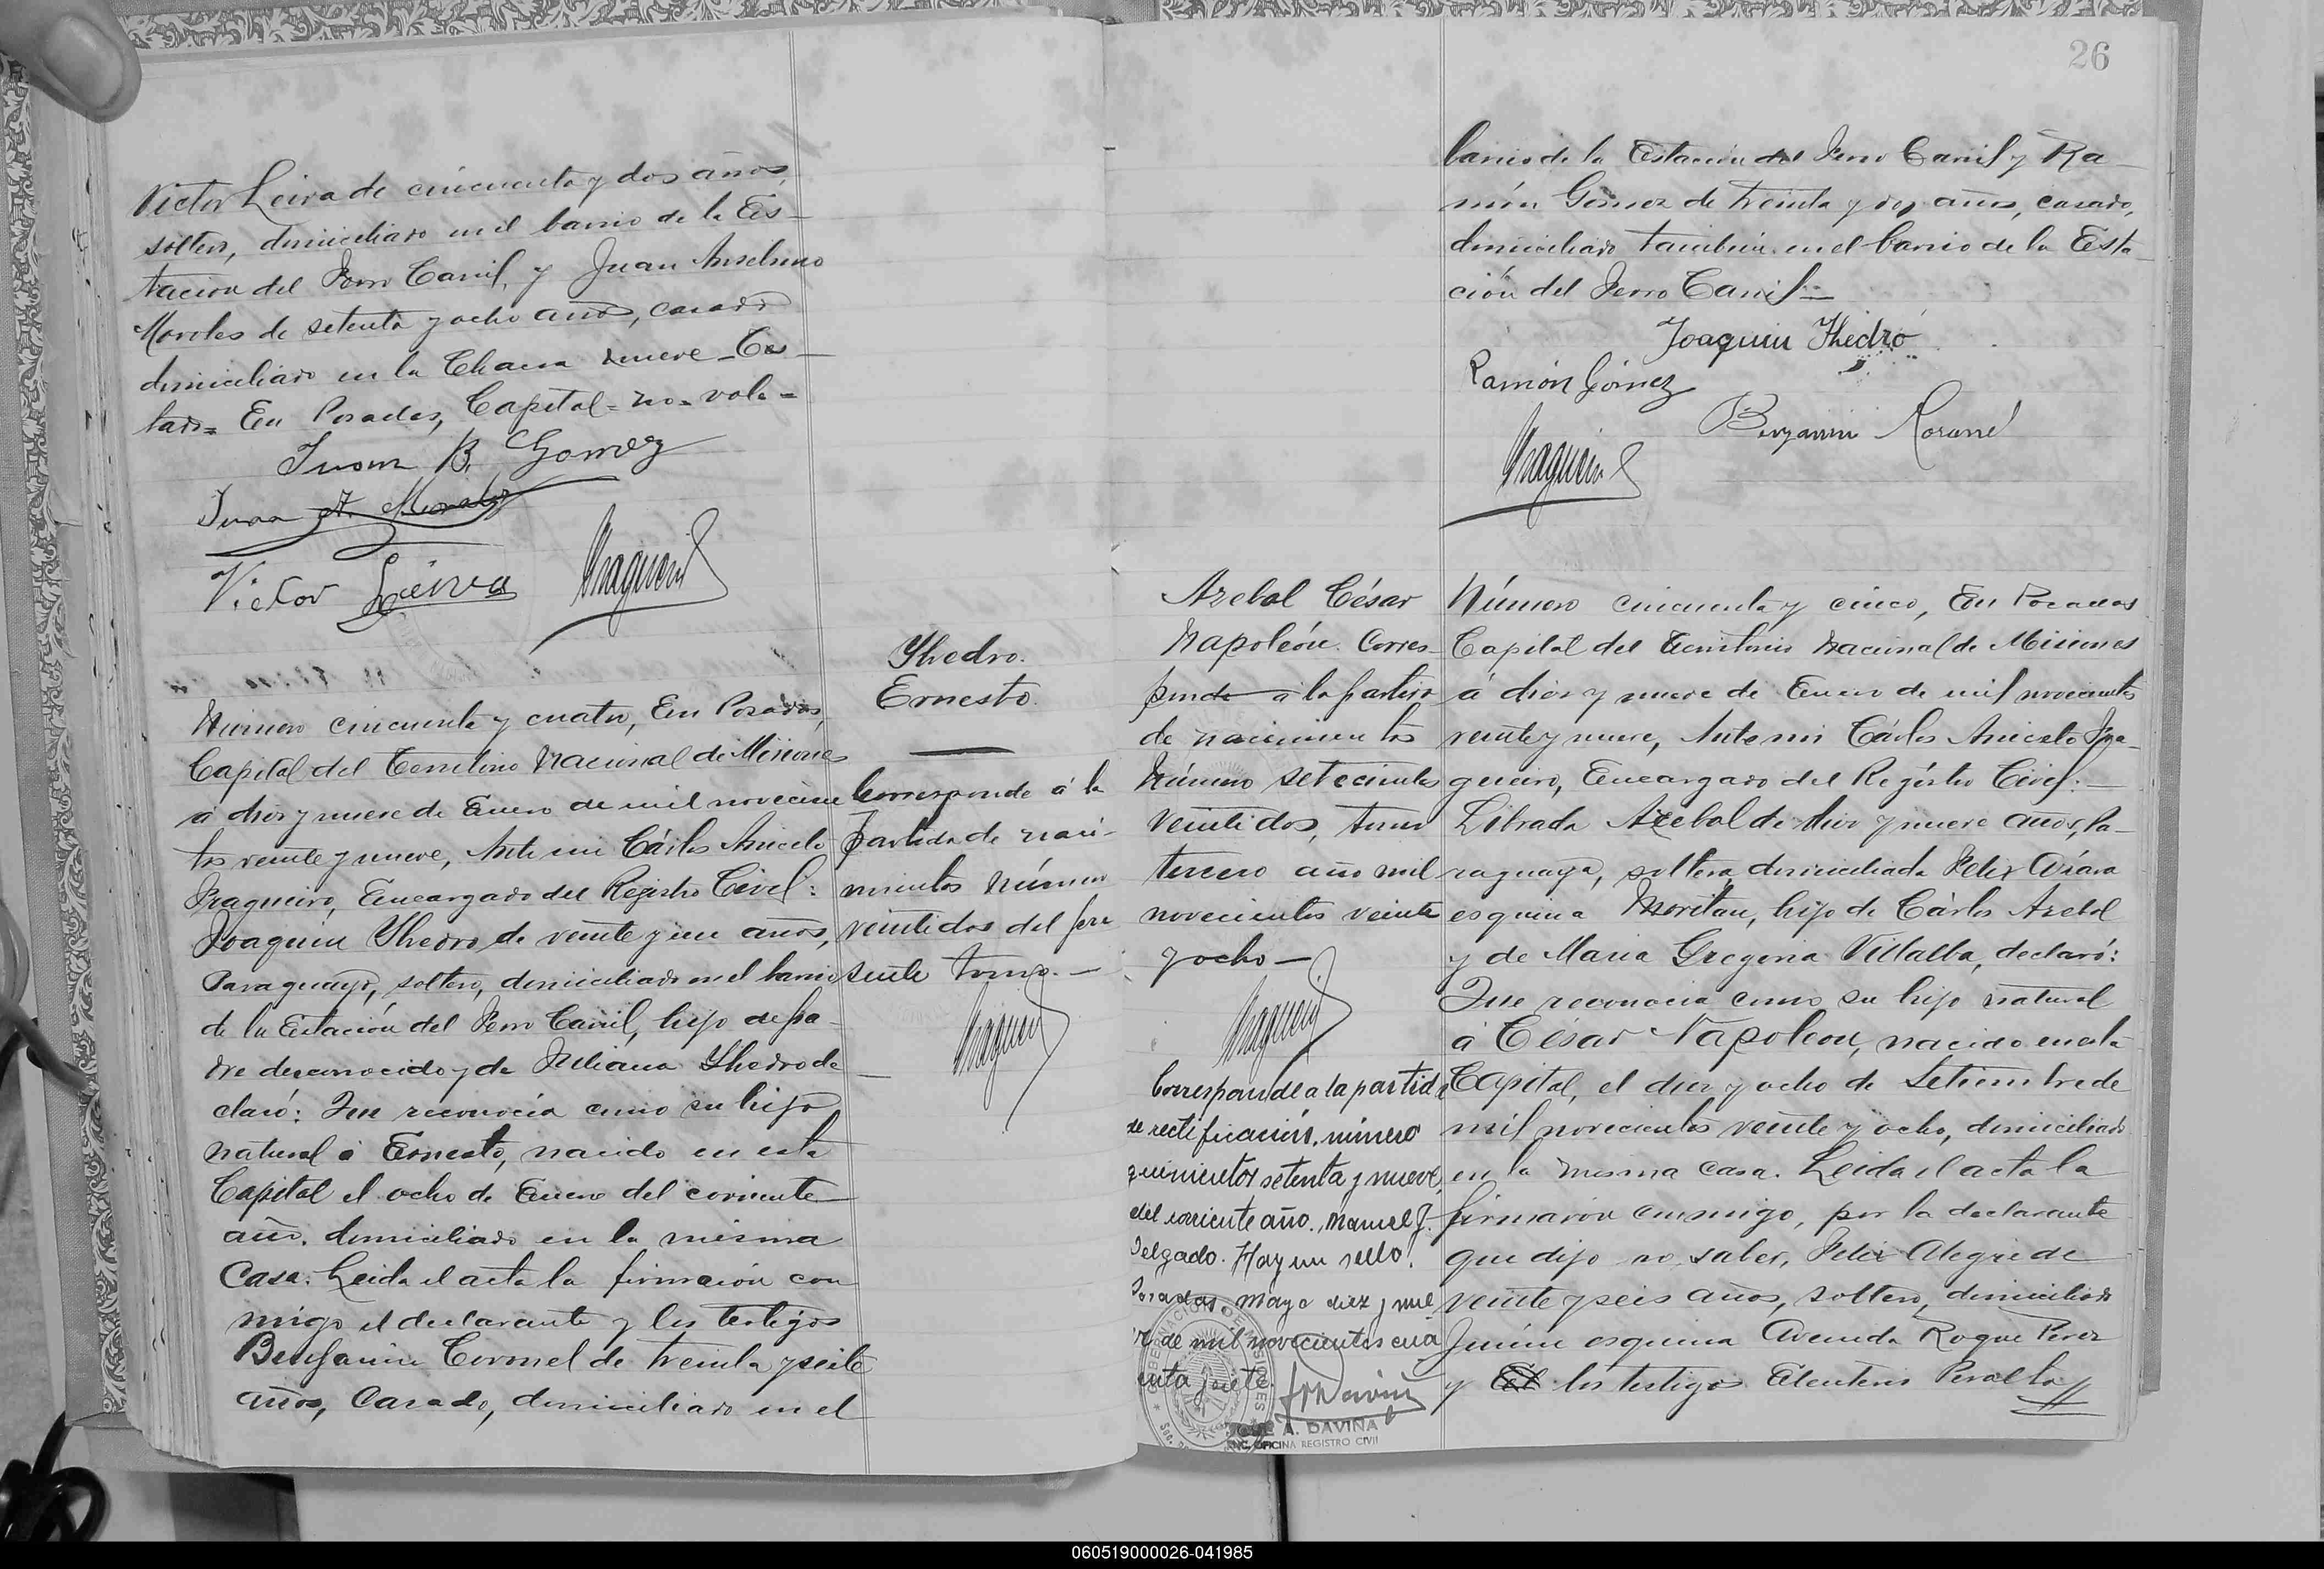 Victor Leiva de cincuenta y dos años,
soltero, domiciliado en el barrio de la Es-
tacion del Ferro Carril, y Juan Anselmo
Morales de setenta y ocho años, casado
domiciliado en la Chacra nueve
tado= En Posadas, Capital= no= vale=
Juan B. Gomez
Juan A. Morales
Victor Leiva
Yhedro.
Ernesto.
Corresponde á la
partida de naci-
mientos número
veintidos del pre
sente tomo.—
Número cincuenta y cuatro, En Posadas,
Capital del Territorio Nacional de Misiones
á diez y nueve de Enero de mil novecien
tos veinte y nueve, Ante mi Cárlos Aniceto
Fragueiro, Encargado del Registro Civil:
Joaquin Yhedro de veinte y un años,
Paraguayo, soltero, domiciliado en el barrio
de la Estación del Ferro Carril, hijo de pa-
dre desconocido y de Juliana Yhedro de
claró: Que reconocía como su hijo
natural á Ernesto, nacido en esta
Capital el ocho de Enero del corriente
año, domiciliado en la misma
Casa. Leida el acta la firmarón con
migo el declarante y los testigos
Benjamin Coronel de treinta y siete
años, Casado, domiciliado en el
26
barrio de la Estación del Ferro Carril y Ra-
món Gómez de treinta y años, casado,
domiciliado tambien en el barrio de la Esta
ción del Ferro Carril=
Joaquin Yhedro
Ramón Gómez
Benjamin
Azebal César
Napoleón. Corres-
ponde á la partida
de nacimientos
Número setecientos
veintidos, tomo
tercero año mil
novecientos veinte
y ocho—
Corresponde a la partida
de rectificación, número
quinientos setenta y nueve,
del corriente año. Manuel J.
Delgado. Hay un sello.
Posadas, mayo diez y nue
ve de mil novecientos cua
renta y siete.
JOSE A. DAVIÑA
ENC. OFICINA REGISTRO CIVIL
Número cincuenta y cinco, En Posadas
Capital del Territorio Nacional de Misiones
á diez y nueve de Enero de mil novecientos
veinte y nueve, Ante mi Cárlos Aniceto Fra-
gueiro, Encargado del Registro Civil:—
Librada Azebal de diez y nueve años, Pa-
raguaya, soltera, domiciliada Felix Azara
esquina, hijo de Cárlos Azebal
y de Maria Gregoria Villalba, declaró:
Que reconocia como su hijo natural
á César Napoleon, nacido en esta
Capital, el diez y ocho de Setiembre de
mil novecientos veinte y ocho, domiciliado
en la misma casa. Leida el acta la
firmarón conmigo, por la declarante
que dijo no saber, Felix Alegre de
veinte y seis años, soltero, domiciliado
Junin esquina Avenida Roque Perez
y los testigos Eleuterio Peralta
060519000026-041985